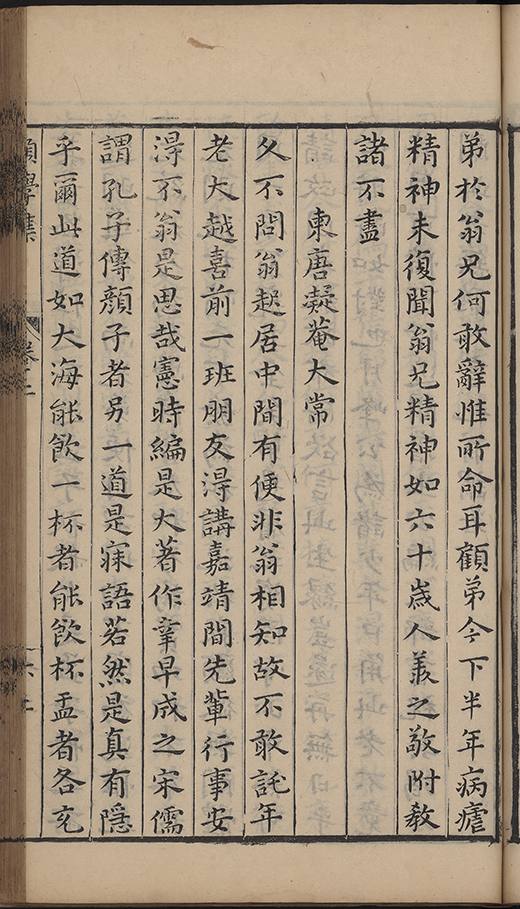 弟於翁兄何敢辭惟所命耳顧弟今下半年病瘧
精神未復聞翁兄精神如六十歲人羨之敬附教
諸不盡
東唐凝菴大常
久不問翁起居中間有便非翁相知故不敢託年
老大越喜前一班朋友淂講嘉靖間先輩行事安
淂不翁是思哉憲時編是大著作幸早成之宋儒
謂孔子傳顏子者另一道是寐語若然是真有隱
乎爾此道如大海能飲一杯者能飲杯盂者各充
學集
卷二